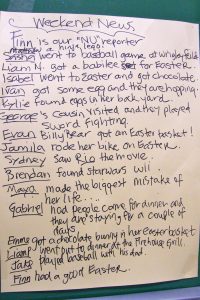 Weekend News
Finn is our "NU" reporter
Sasha went to baseball game at Wrigley field
Liam N. got a bablilee for Easter.
Isabel went to Easter and got chocolate
Ivan got some egg and they are hopping
Kylie found eggs in her back yard.
George's cousin visited and they played
Sword fighting.
Evan Billy Bear got an Easter basket!
Jamila rode her bike on Easter.
Sydney saw RIO the movie.
Brendan found starwars wii.
Maya made the biggest mistake of
her life...
Gabriel had people come for dinner and
they are staying for a couple of
days
Emma got a chocolate bunny in her easter basket
Liam went out to dinner at the Firehouse Grill.
Jake played baseball with his dad.
Finn had a good Easter.